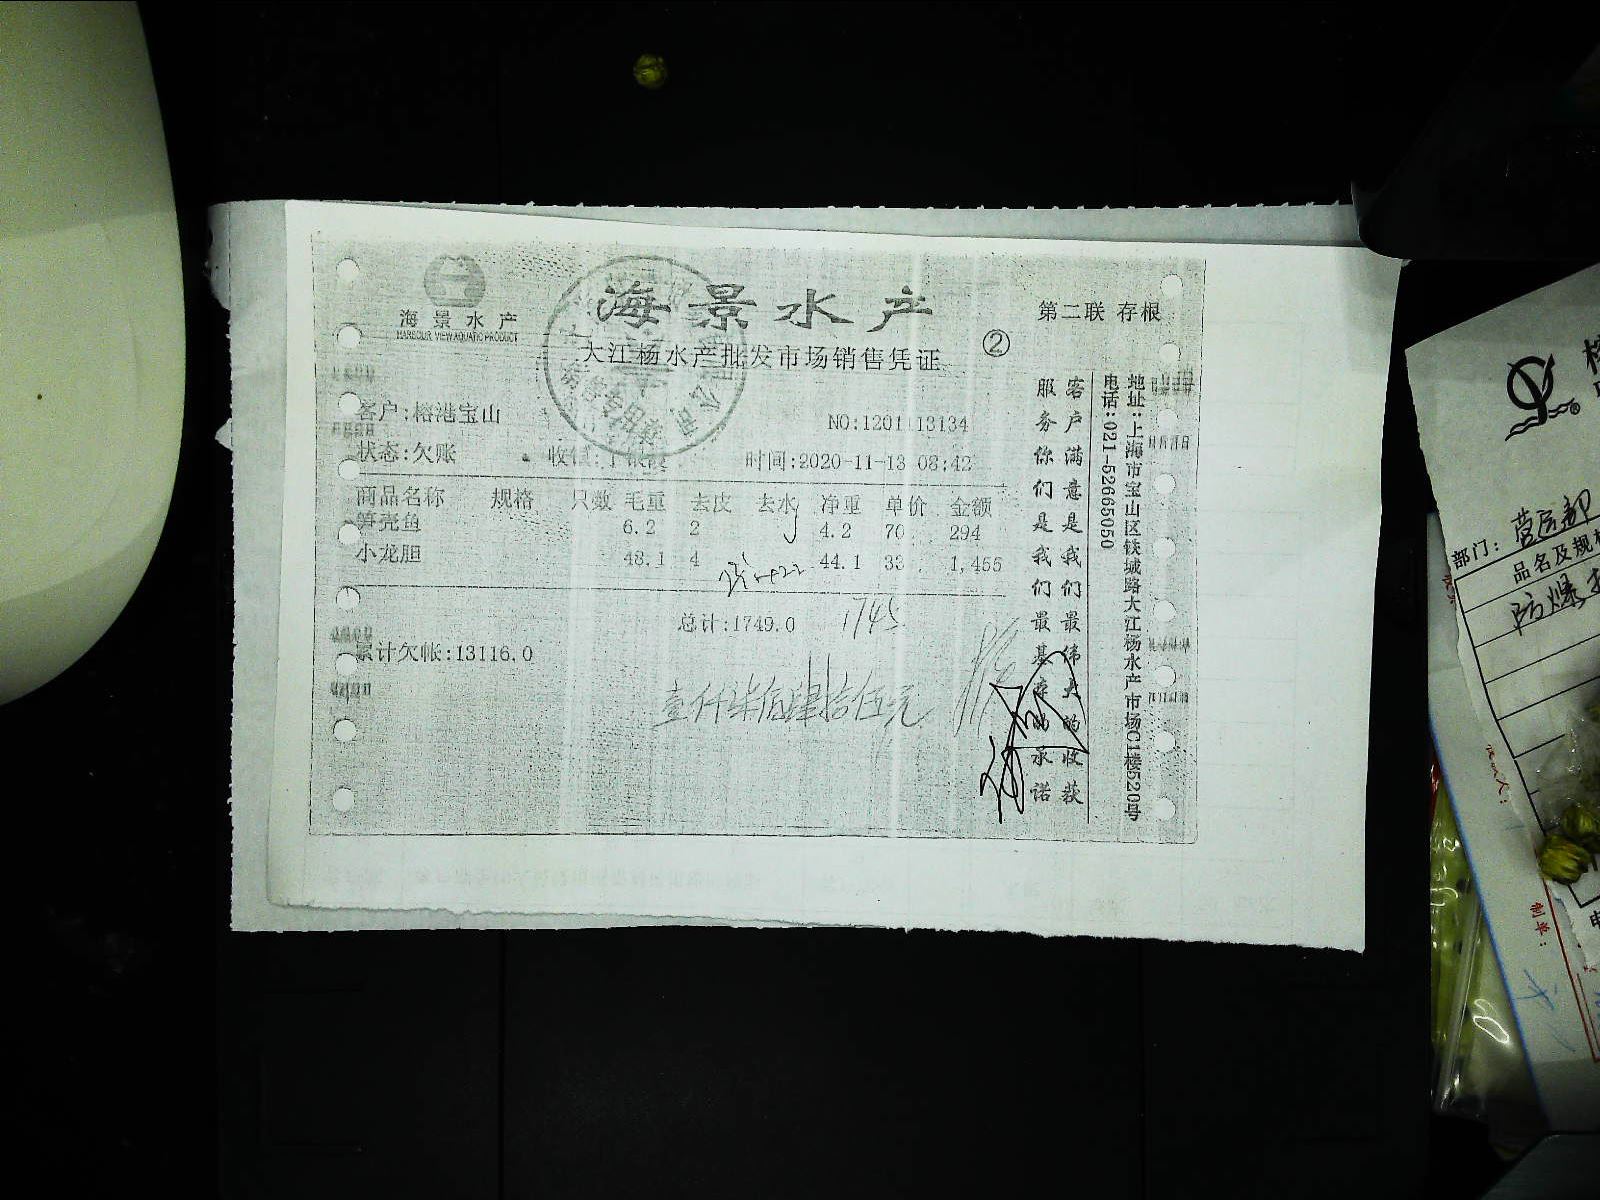 海景水产
HARBOUR VIEW AQUATIC PRODUCT
海景水产
第二联 存根
大江杨水产批发市场销售凭证
②
客户:榕港宝山
NO:1201 13134
状态:欠账
时间:2020-11-13 08:42
商品名称 规格 只数 毛重 去皮 去水 净重 单价 金额
笋壳鱼 6.2 2 4.2 70 294
小龙胆 48.1 4 44.1 33 1,455
总计:1749.0 1745
累计欠帐:13116.0
壹仟柒佰肆拾伍元
客户满意是我们最伟大的收获
服务你们是我们最基本的承诺
地址:上海市宝山区铁城路大江杨水产市场C1楼520号
电话:021-52665050
部门: 营运部
品名及规格
防爆
制单: